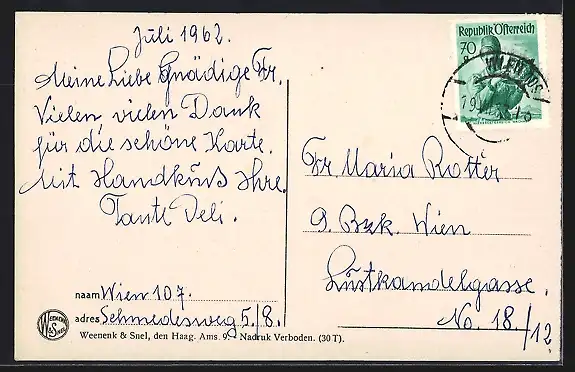 Juli 1962.
Meine Liebe Gnädige Fr.
Vielen, vielen Dank
für die schöne Karte.
Mit Handkuß Ihre
Tante Deli.
naam Wien 107.
adres Schmedesweg 5/8.
WEENENK & SNEL
Weenenk & Snel, den Haag. Ams. 9. - Nadruk Verboden. (30 T).
Republik Österreich
70
Fr. Maria Rotter
9. Bzk. Wien
Lustkandelgasse.
No. 18/12